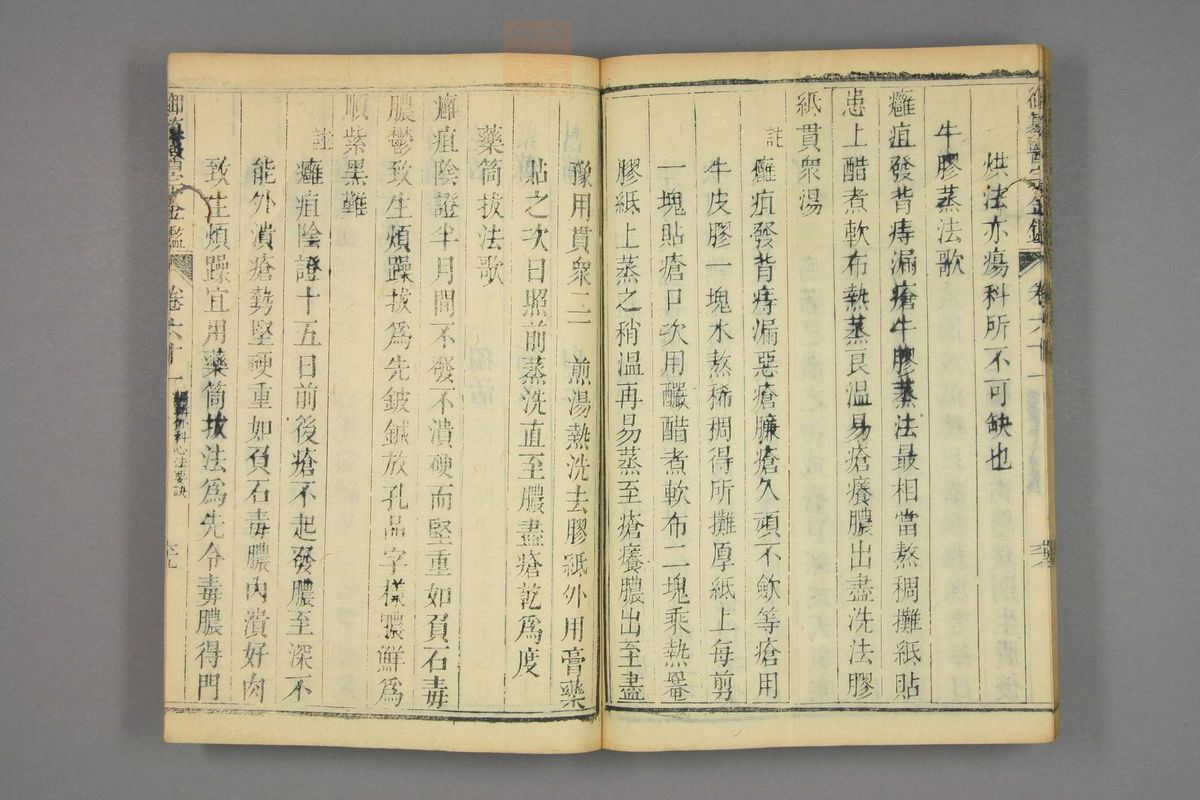 烘法亦瘍科所不可缺也
牛膠蒸法歌
癰疽發背痔漏瘡牛膠蒸法最相當熬稠攤紙貼
患上醋煮軟布熱蒸良溫易瘡癢膿出盡洗法膠
紙貫衆湯
註
癰疽發背痔漏惡瘡臁瘡久頑不歛等瘡用
牛皮膠一塊水熬稀稠得所攤厚紙上每剪
一塊貼瘡口次用釅醋煮軟布二塊乘熱罨
膠紙上蒸之稍溫再易蒸至瘡癢膿出至盡
豫用貫衆二 煎湯熱洗去膠紙外用膏藥
貼之次日照前蒸洗直至膿盡瘡乾爲度
藥筒拔法歌
癰疽陰證半月間不發不潰硬而堅重如負石毒
膿鬱致生煩躁拔爲先鈹鍼放孔品字樣膿鮮爲
順紫黑難
註
癰疽陰證十五日前後瘡不起發膿至深不
能外潰瘡勢堅硬重如負石毒膿內潰好肉
致生煩躁宜用藥筒拔法爲先令毒膿得門
金鑑
卷六十一
編輯外科心法要訣